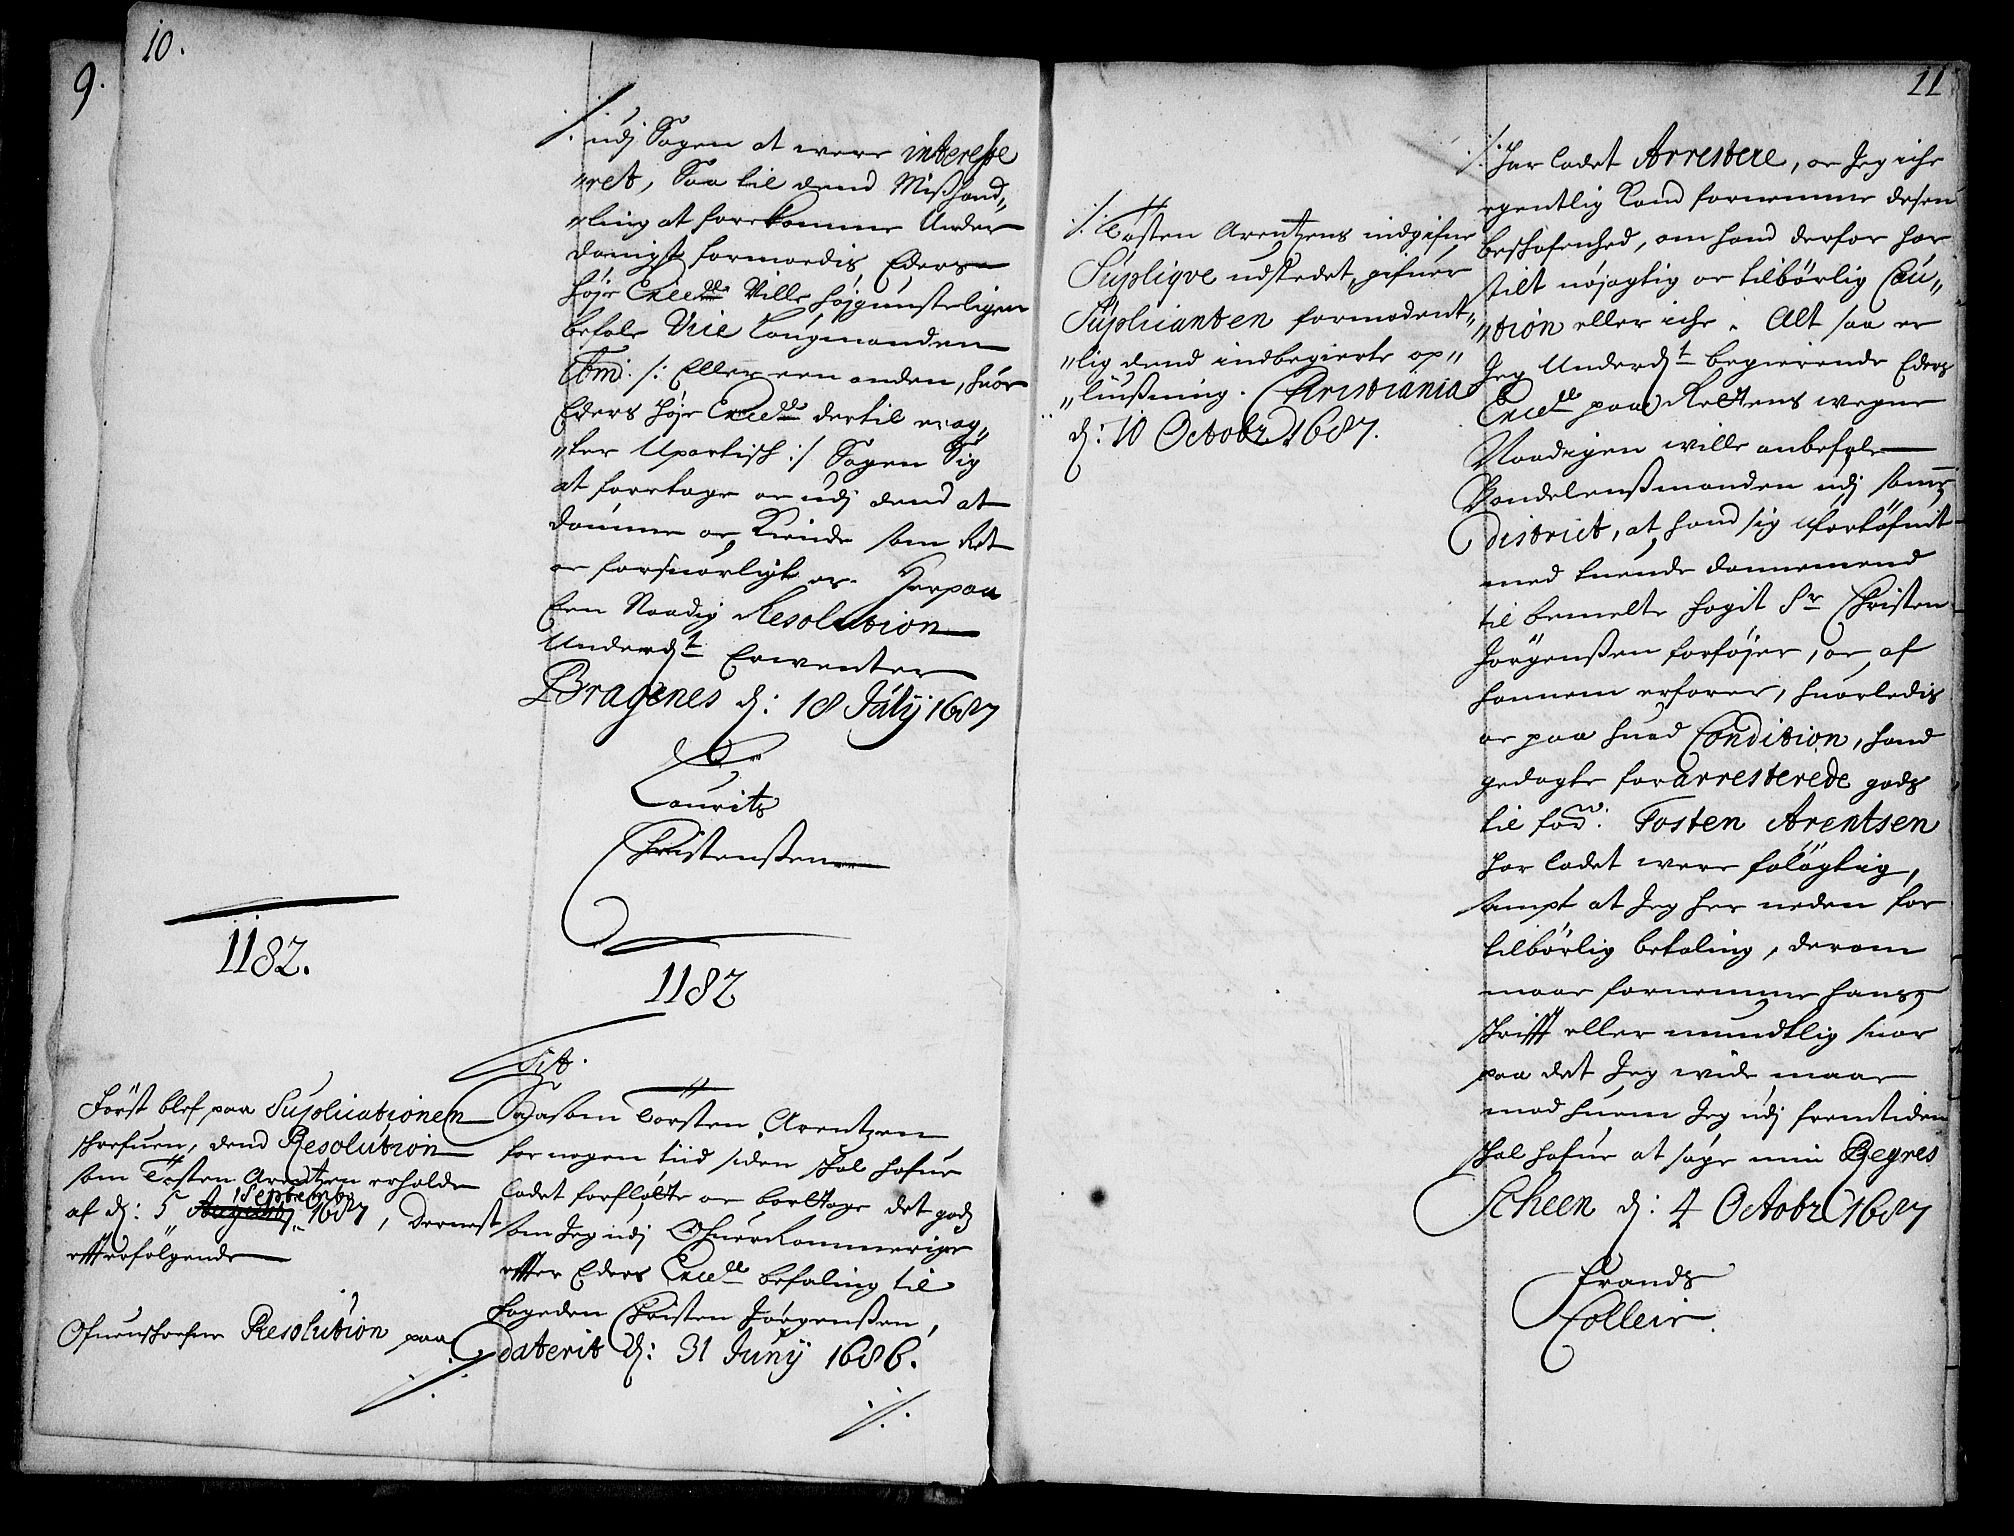 9.
10.
./. udj Sagen at were interesse
"ret, Saa til dend Mißhand,,
"ling at forekomme Under
danigst formoedis, Eders
høje Excell. Ville højgunsteligen
befale Vice Laugmanden
Tbm: /: Eller een anden, huor
Eders høje Excell. dertil erag,,
"ter Upartisch :/ Sagen Sig
at foretage oc udj dend at
dømme oc Kiende som Ret
oc forsuarligt er. Herpaa
Een Naadig Resolution
Underd.t Erwenter
Bragenes d: 18 July 1687
Laurits
Christensen
1182.
Først blef paa Suplicationen
schrefuen, dend Resolution
som Tosten Arentzen erholdt
af d: 5 Septemb: 1687, Dernest
effterfølgende
Ofuenschrefne Resolution paa
./.
1182
Saasom Torsten Arentzen
for nogen tiid siden skal hafue
ladet forfløtte oc borttage det gods
som Jeg udj Ofuerkommerige
effter Eders Excell. befaling til
fogeden Christen Jørgensen,
daterit d: 31 Juny 1686.
./.
11
./. Tosten Arentzens indgifne
Supliqve udstedet, gifuer
Suplicanten formodent,,
"lig dend indbegierte op,,
"liusning. Christiania
d: 10 Octobr 1687.
./. har ladet Arrestere, oc Jeg iche
egentlig Kand fornemme desen
beschafenhed, om hand derfor har
stilt nøjagtig oc tilbørlig Cau,,
"tion eller iche. Alt saa er
Jeg Underd.t begierende Eders
Excell. paa Rettens wegne
Naadigen wille anbefale
Bondelensmanden udj samme
district, at hand sig ufortøfuit
med tuende dannemend
til bemelte fogit Sr Christen
Jørgensen forføjer, oc af
hannem erfarer, huorledis
oc paa huad Condition, hand
gedagte for arresterede gods
til fod: Tosten Arentsen
har ladet were følagtig,
sampt at Jeg her neden for
tilbørlig betaling, derom
maae fornemme hans
schrifft eller mundtlig suar
paa det Jeg wide maae
med huem Jeg udj fremtiden
skal hafue at søge min Regres
Scheen d: 4 Octobr 1687
Frands
Colleir.